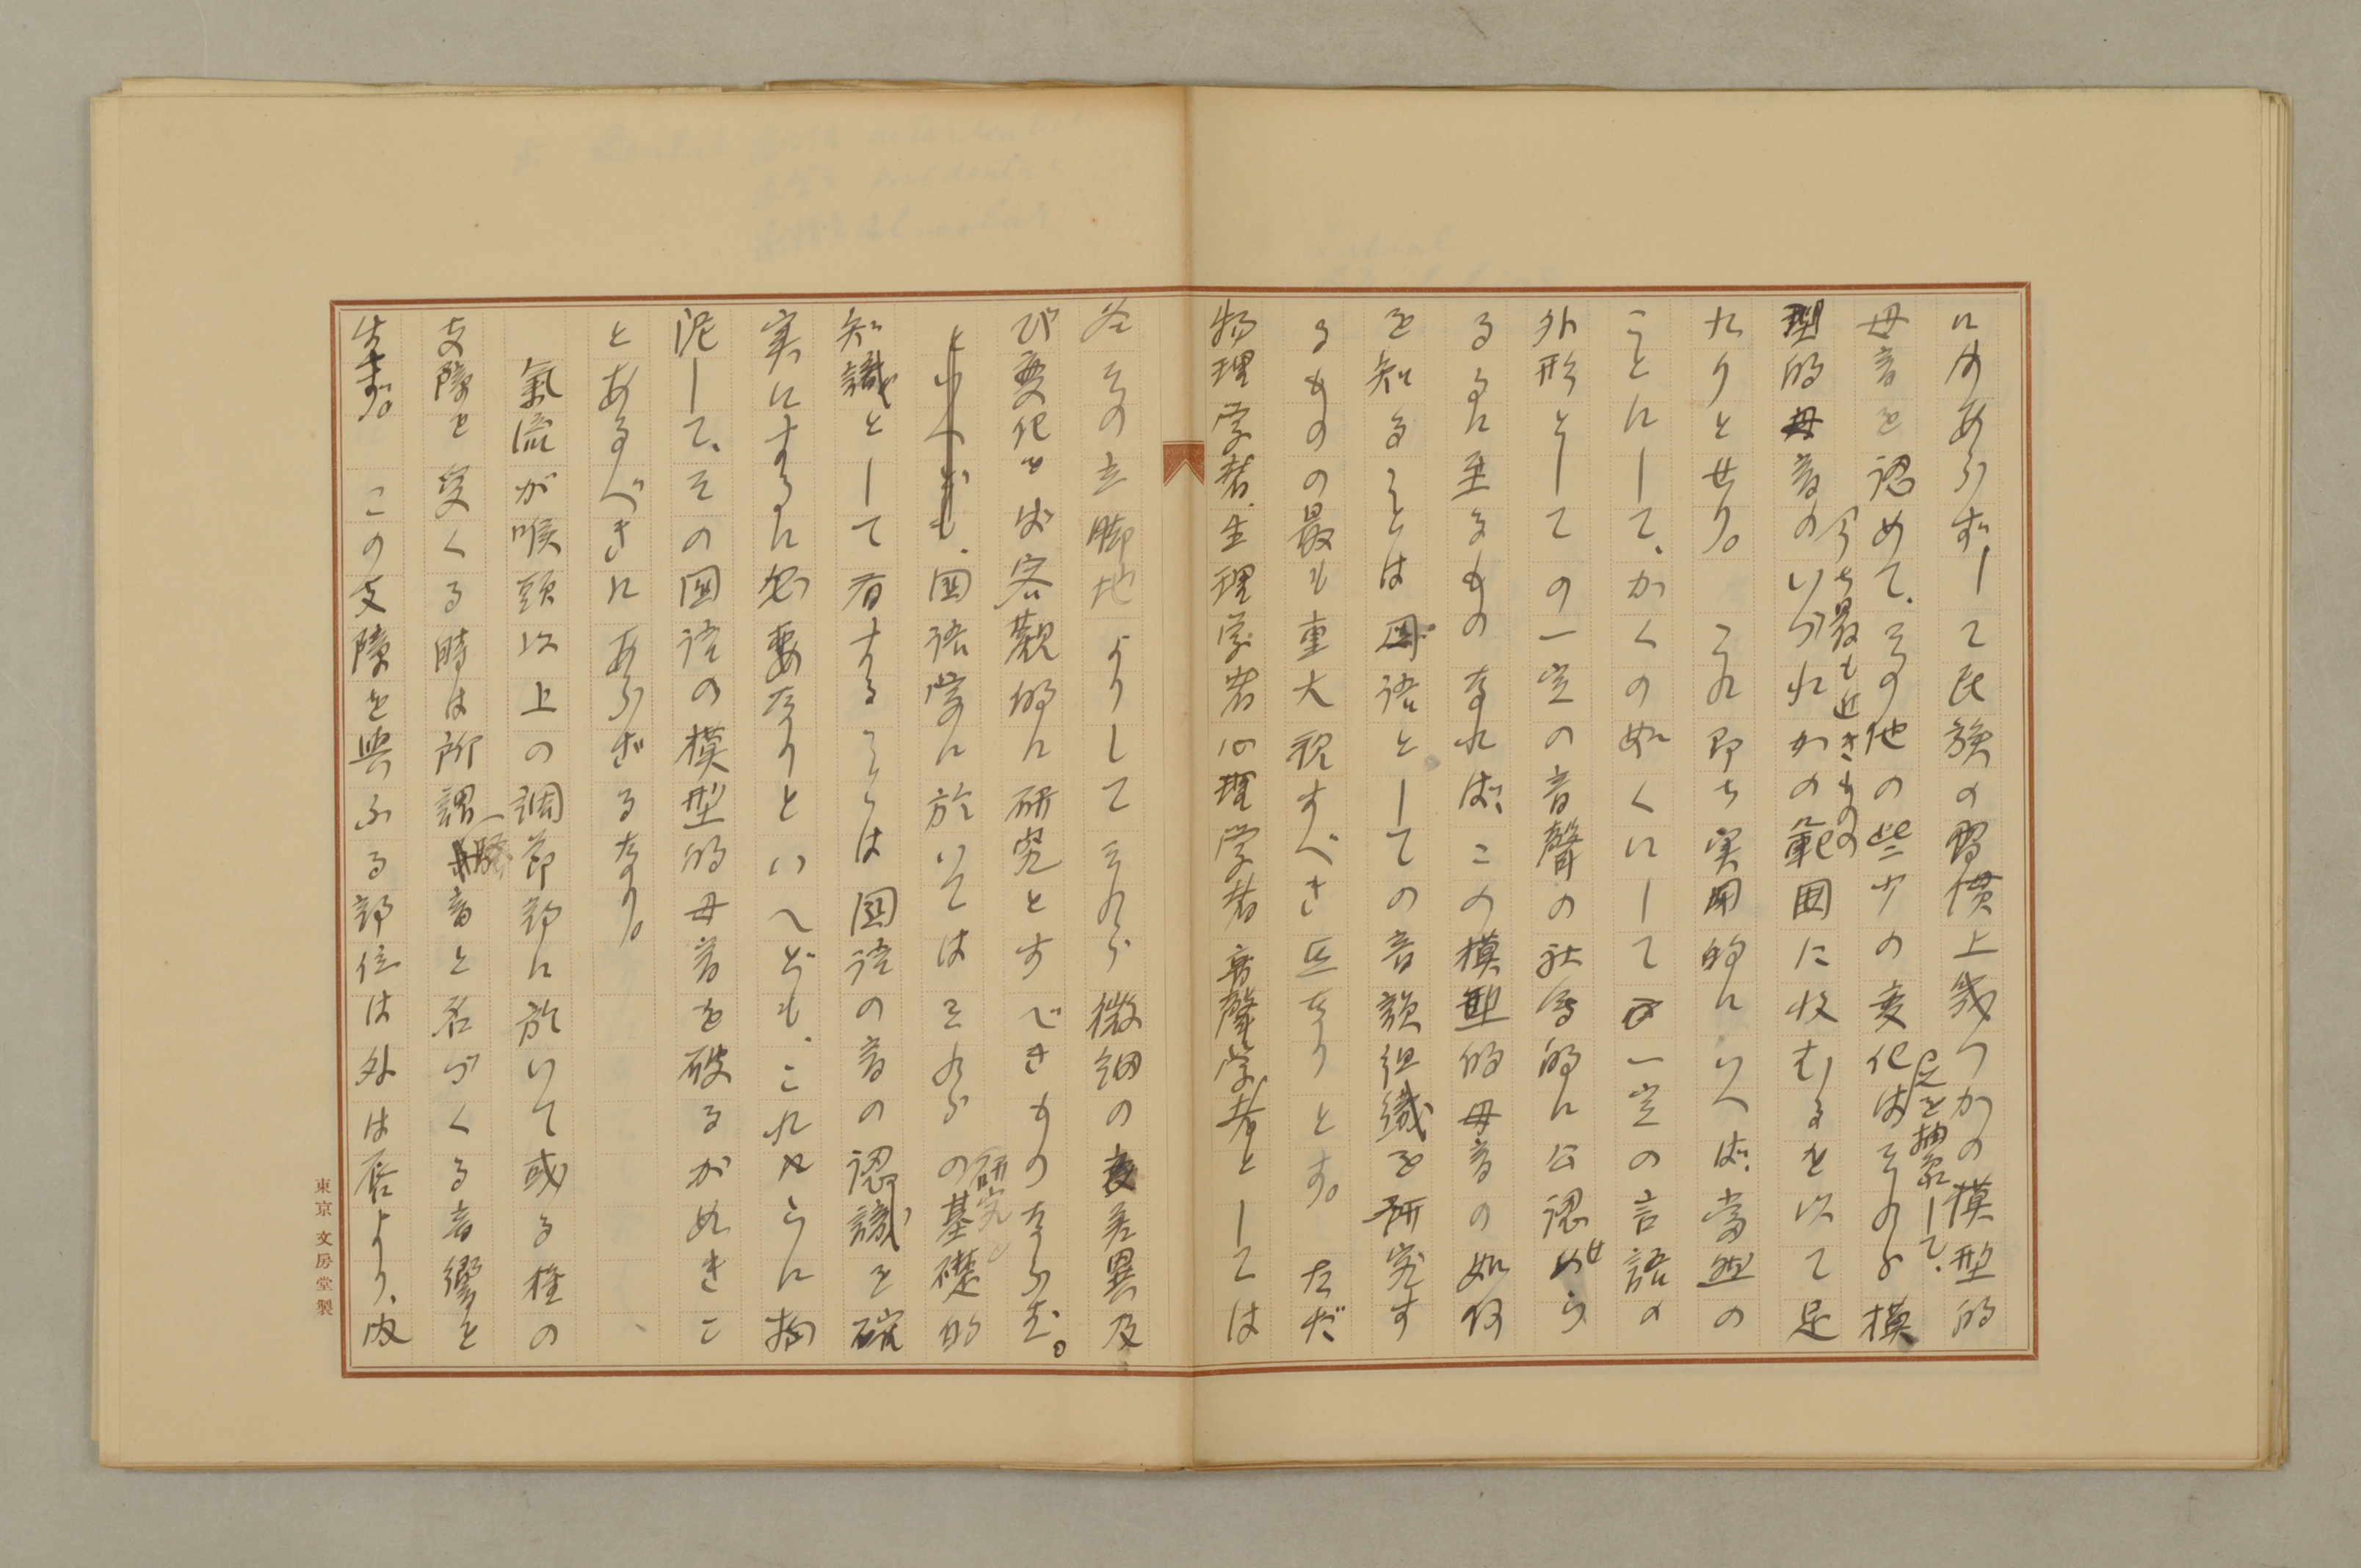 にはあらずして民族の習慣上幾つかの模型的
母音を認めて、その他の些少の変化は之を抽象して、それら模
型的母音のうち最も近きもののいづれかの範囲に收むるを以て足
れりとせり。これ即ち実用的にいへば、当然の
ことにして、かくの如くにして一定の言語の
外形としての一定の音聲の社会的に公認せら
るるに至るものなれば、この模型的母音の如何
を知ることは国語としての音韻組織を研究す
るものの最も重大視すべき点なりとす。ただ
物理学者、生理学者心理学者音聲学者としては
各その立脚地よりしてそれら微細の差異及
び変化をば客観的に研究とすべきものならむ。
といへども、国語学に於いてはそれらの研究の基礎的
知識として有することは国語の音の認識を確
実にするに必要なりといへども、これやうに拘
泥して、その国語の模型的母音を破るが如きこ
とあるべきにあらざるなり。
氣流が喉頭以上の調節部に於いて或る種の
支障を受くる時は所謂騒音と名づくる音響を
生ず。この支障を與ふる部位は外は唇より、内
東京文房堂製